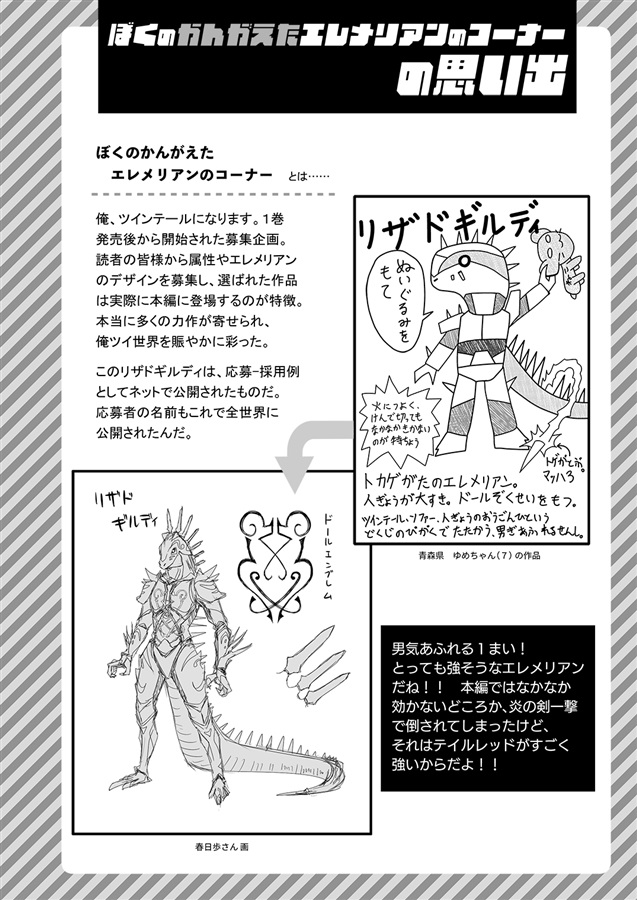 ぼくのかんがえたエレメリアンのコーナー
の思い出
ぼくのかんがえた
エレメリアンのコーナー とは……
俺、ツインテールになります。1巻
発売後から開始された募集企画。
読者の皆様から属性やエレメリアン
のデザインを募集し、選ばれた作品
は実際に本編に登場するのが特徴。
本当に多くの力作が寄せられ、
俺ツイ世界を賑やかに彩った。
このリザドギルディは、応募-採用例
としてネットで公開されたものだ。
応募者の名前もこれで全世界に
公開されたんだ。
リザドギルディ
ぬいぐるみを
もて
火につよく、
けんで切っても
なかなかきかない
のが特ちょう
トゲがとぶ。
マッハ3
トカゲがたのエレメリアン。
人ぎょうが大すき。ドールぞくせいをもつ。
ツインテール、ソファー、人ぎょうのおうごんひという
どくじのびがくでたたかう、男ぎあふれるせんし。
青森県 ゆめちゃん(7)の作品
リザド
ギルディ
ドールエンブレム
春日歩さん 画
男気あふれる1まい!
とっても強そうなエレメリアン
だね!! 本編ではなかなか
効かないどころか、炎の剣一撃
で倒されてしまったけど、
それはテイルレッドがすごく
強いからだよ!!